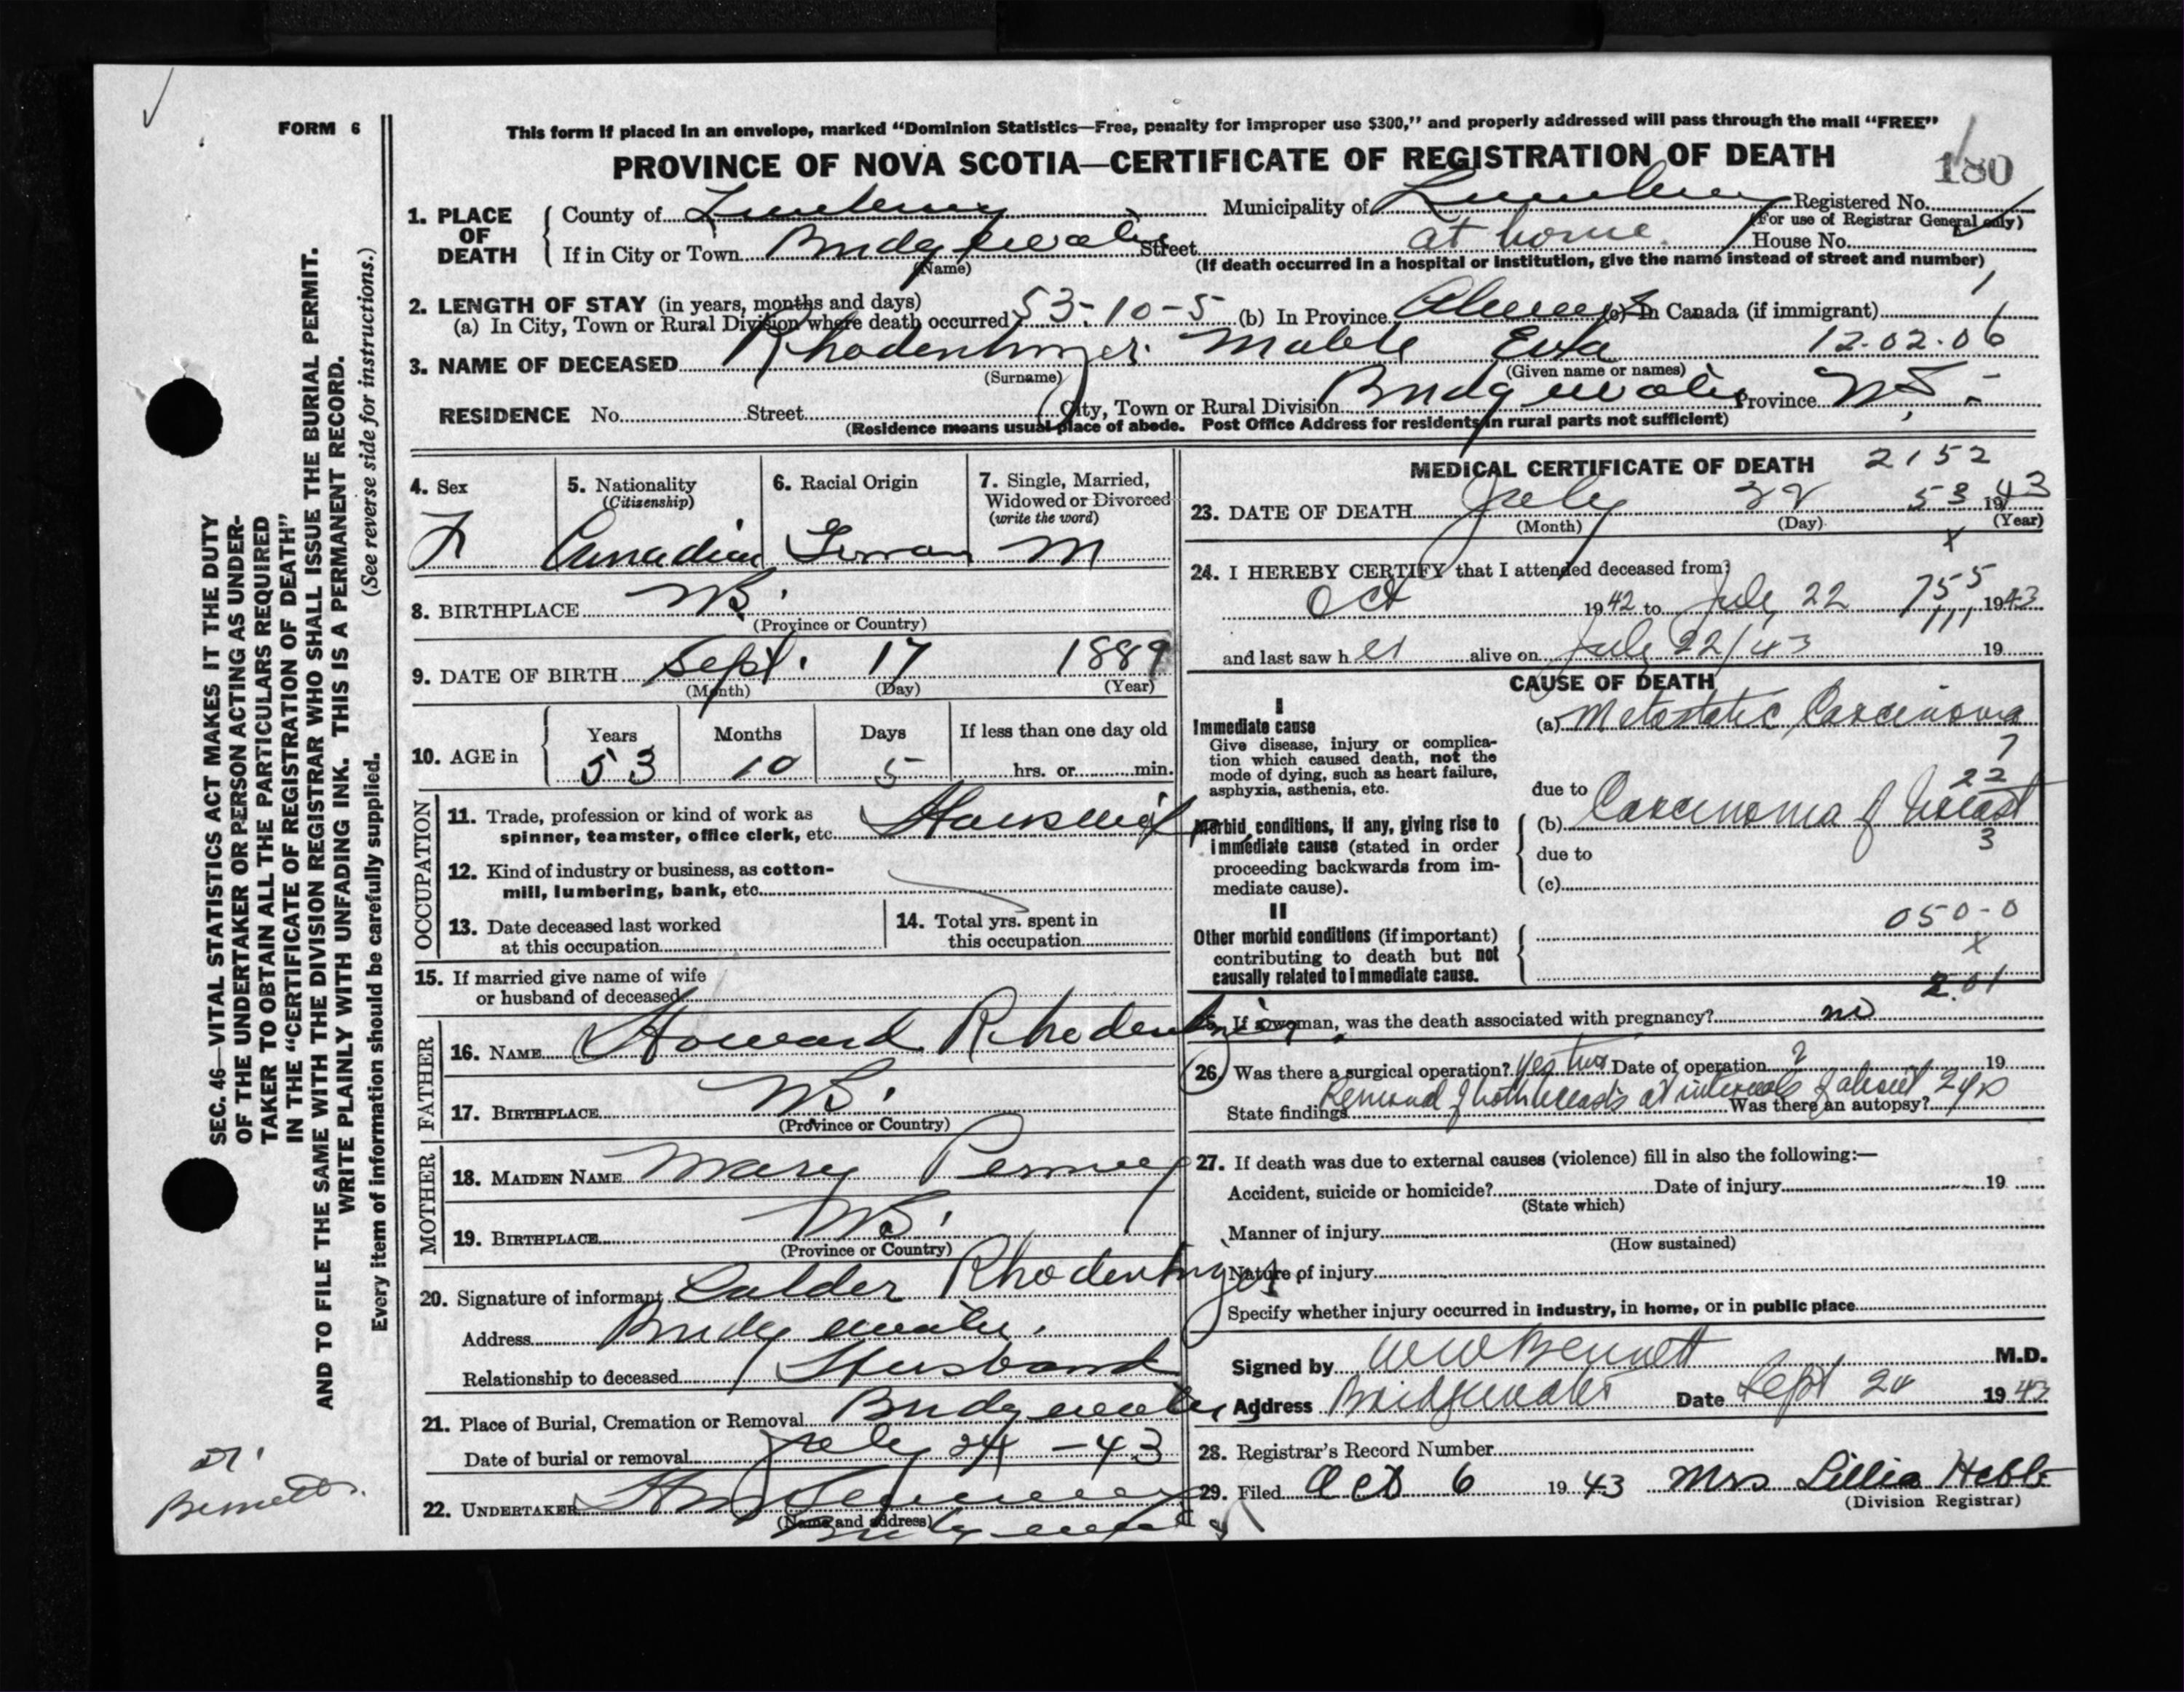 FORM 6
This form if placed in an envelope, marked "Dominion Statistics—Free, penalty for improper use $300," and properly addressed will pass through the mail "FREE"
PROVINCE OF NOVA SCOTIA—CERTIFICATE OF REGISTRATION OF DEATH
180
1. PLACE OF DEATH
County of Lunenburg Municipality of Lunenburg Registered No.
(For use of Registrar General only)
If in City or Town Bridgewater Street at home House No.
(Name) (If death occurred in a hospital or institution, give the name instead of street and number)
2. LENGTH OF STAY (in years, months and days)
(a) In City, Town or Rural Division where death occurred 53-10-5 (b) In Province Always (c) In Canada (if immigrant)
3. NAME OF DECEASED Rhodenhizer Mable Eva 12.02.06
(Surname) (Given name or names)
RESIDENCE No. Street City, Town or Rural Division Bridgewater Province N.S.
(Residence means usual place of abode. Post Office Address for residents in rural parts not sufficient)
4. Sex
F
5. Nationality
(Citizenship)
Canadian
6. Racial Origin
German
7. Single, Married,
Widowed or Divorced
(write the word)
M
8. BIRTHPLACE
(Province or Country)
9. DATE OF BIRTH Sept. 17 1889
(Month) (Day) (Year)
10. AGE in
Years Months Days If less than one day old
53 10 5 hrs. or min.
OCCUPATION
11. Trade, profession or kind of work as
spinner, teamster, office clerk, etc. Housewife
12. Kind of industry or business, as cotton-
mill, lumbering, bank, etc.
13. Date deceased last worked
at this occupation
14. Total yrs. spent in
this occupation
15. If married give name of wife
or husband of deceased
FATHER
16. NAME Howard Rhodenhizer
17. BIRTHPLACE
(Province or Country)
MOTHER
18. MAIDEN NAME Mary
19. BIRTHPLACE
(Province or Country)
20. Signature of informant Calder Rhodenhizer
Address Bridgewater
Relationship to deceased Husband
21. Place of Burial, Cremation or Removal Bridgewater
Date of burial or removal July 24 - 43
22. UNDERTAKER
(Name and address)
Bridgewater
MEDICAL CERTIFICATE OF DEATH 2152
23. DATE OF DEATH July 22 53 1943
(Month) (Day) (Year)
x
24. I HEREBY CERTIFY that I attended deceased from:
Oct 1942 to July 22 755 1943
and last saw her alive on July 22/43 19
CAUSE OF DEATH
I
Immediate cause
Give disease, injury or complica-
tion which caused death, not the
mode of dying, such as heart failure,
asphyxia, asthenia, etc.
(a) Metastatic Carcinoma
7
22
due to
Morbid conditions, if any, giving rise to
immediate cause (stated in order
proceeding backwards from im-
mediate cause).
(b) Carcinoma of breast
3
due to
(c)
II
Other morbid conditions (if important)
contributing to death but not
causally related to immediate cause.
050-0
x
2.01
25. If a woman, was the death associated with pregnancy? no
26. Was there a surgical operation? Yes two Date of operation ? 19
Removal of both breasts at intervals of about 2 yrs
State findings Was there an autopsy?
27. If death was due to external causes (violence) fill in also the following:—
Accident, suicide or homicide? Date of injury 19
(State which)
Manner of injury
(How sustained)
Nature of injury
Specify whether injury occurred in industry, in home, or in public place
Signed by W W Bennett M.D.
Address Bridgewater Date Sept 24 1943
28. Registrar's Record Number
29. Filed Oct 6 1943 Mrs Lillia Hebb
(Division Registrar)
SEC. 46—VITAL STATISTICS ACT MAKES IT THE DUTY
OF THE UNDERTAKER OR PERSON ACTING AS UNDER-
TAKER TO OBTAIN ALL THE PARTICULARS REQUIRED
IN THE "CERTIFICATE OF REGISTRATION OF DEATH"
AND TO FILE THE SAME WITH THE DIVISION REGISTRAR WHO SHALL ISSUE THE BURIAL PERMIT.
WRITE PLAINLY WITH UNFADING INK. THIS IS A PERMANENT RECORD.
Every item of information should be carefully supplied. (See reverse side for instructions.)
Dr.
Bennett